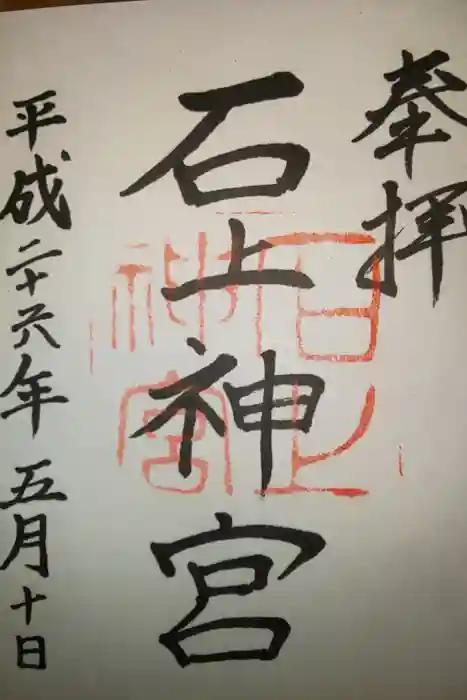 奉拝
石上神宮
平成二十六年五月十日
石上
神宮